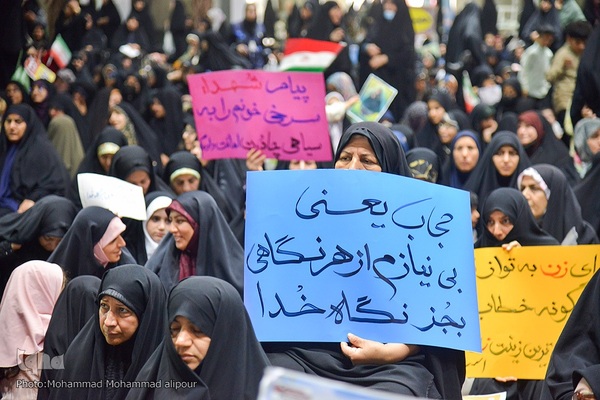 پیام شهداء
سرخی خونم را به
سیاهی چادرت امانت دادم
حجاب یعنی
بی نیازم از هر نگاهی
بجز نگاه خدا
ای زن به تو از
گونه خطاب
ترین زینت
iqna
Photo:Mohammad Mohammad alipour